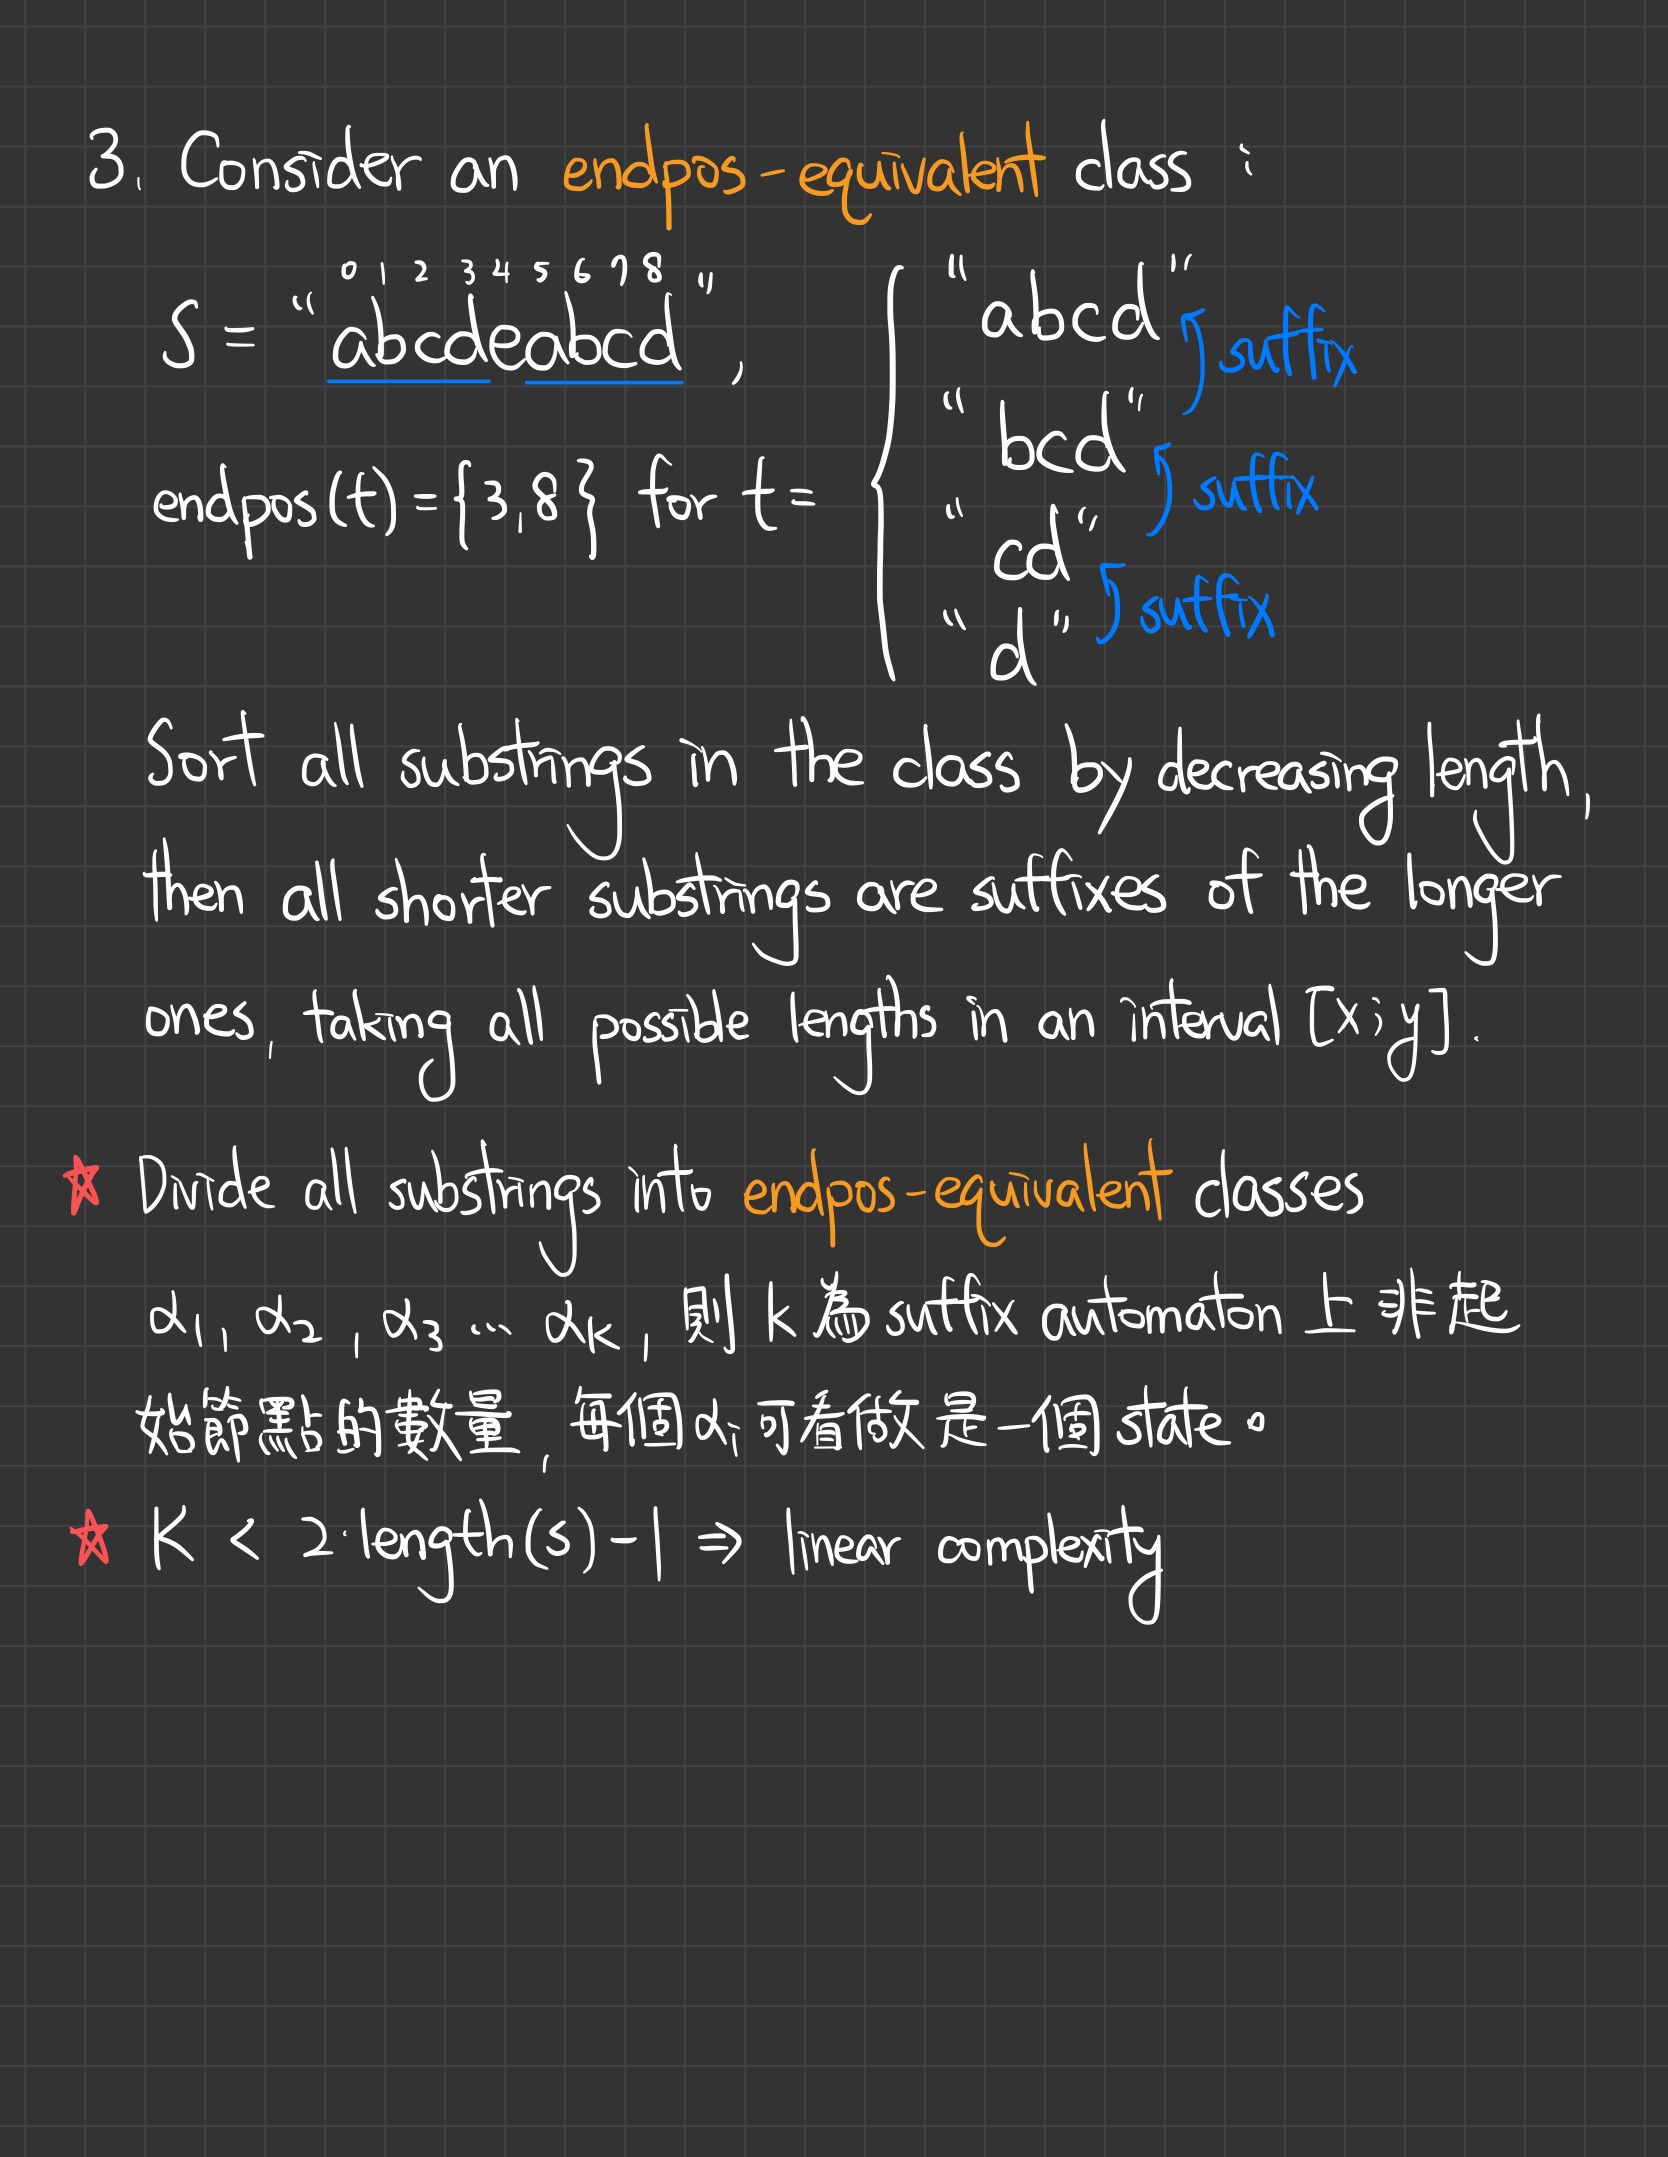 3. Consider an endpos-equivalent class :
0 1 2 3 4 5 6 7 8
S = "abcdeabcd",
endpos(t) = {3,8} for t =
"abcd"
suffix
"bcd"
suffix
"cd"
suffix
"d"
Sort all substrings in the class by decreasing length,
then all shorter substrings are suffixes of the longer
ones, taking all possible lengths in an interval [x;y].
☆ Divide all substrings into endpos-equivalent classes
α₁, α₂, α₃ ... αₖ, 則 k 為 suffix automaton 上非起
始節點的數量, 每個 αᵢ 可看做是一個 state。
☆ K < 2·length(s)-1 ⇒ linear complexity